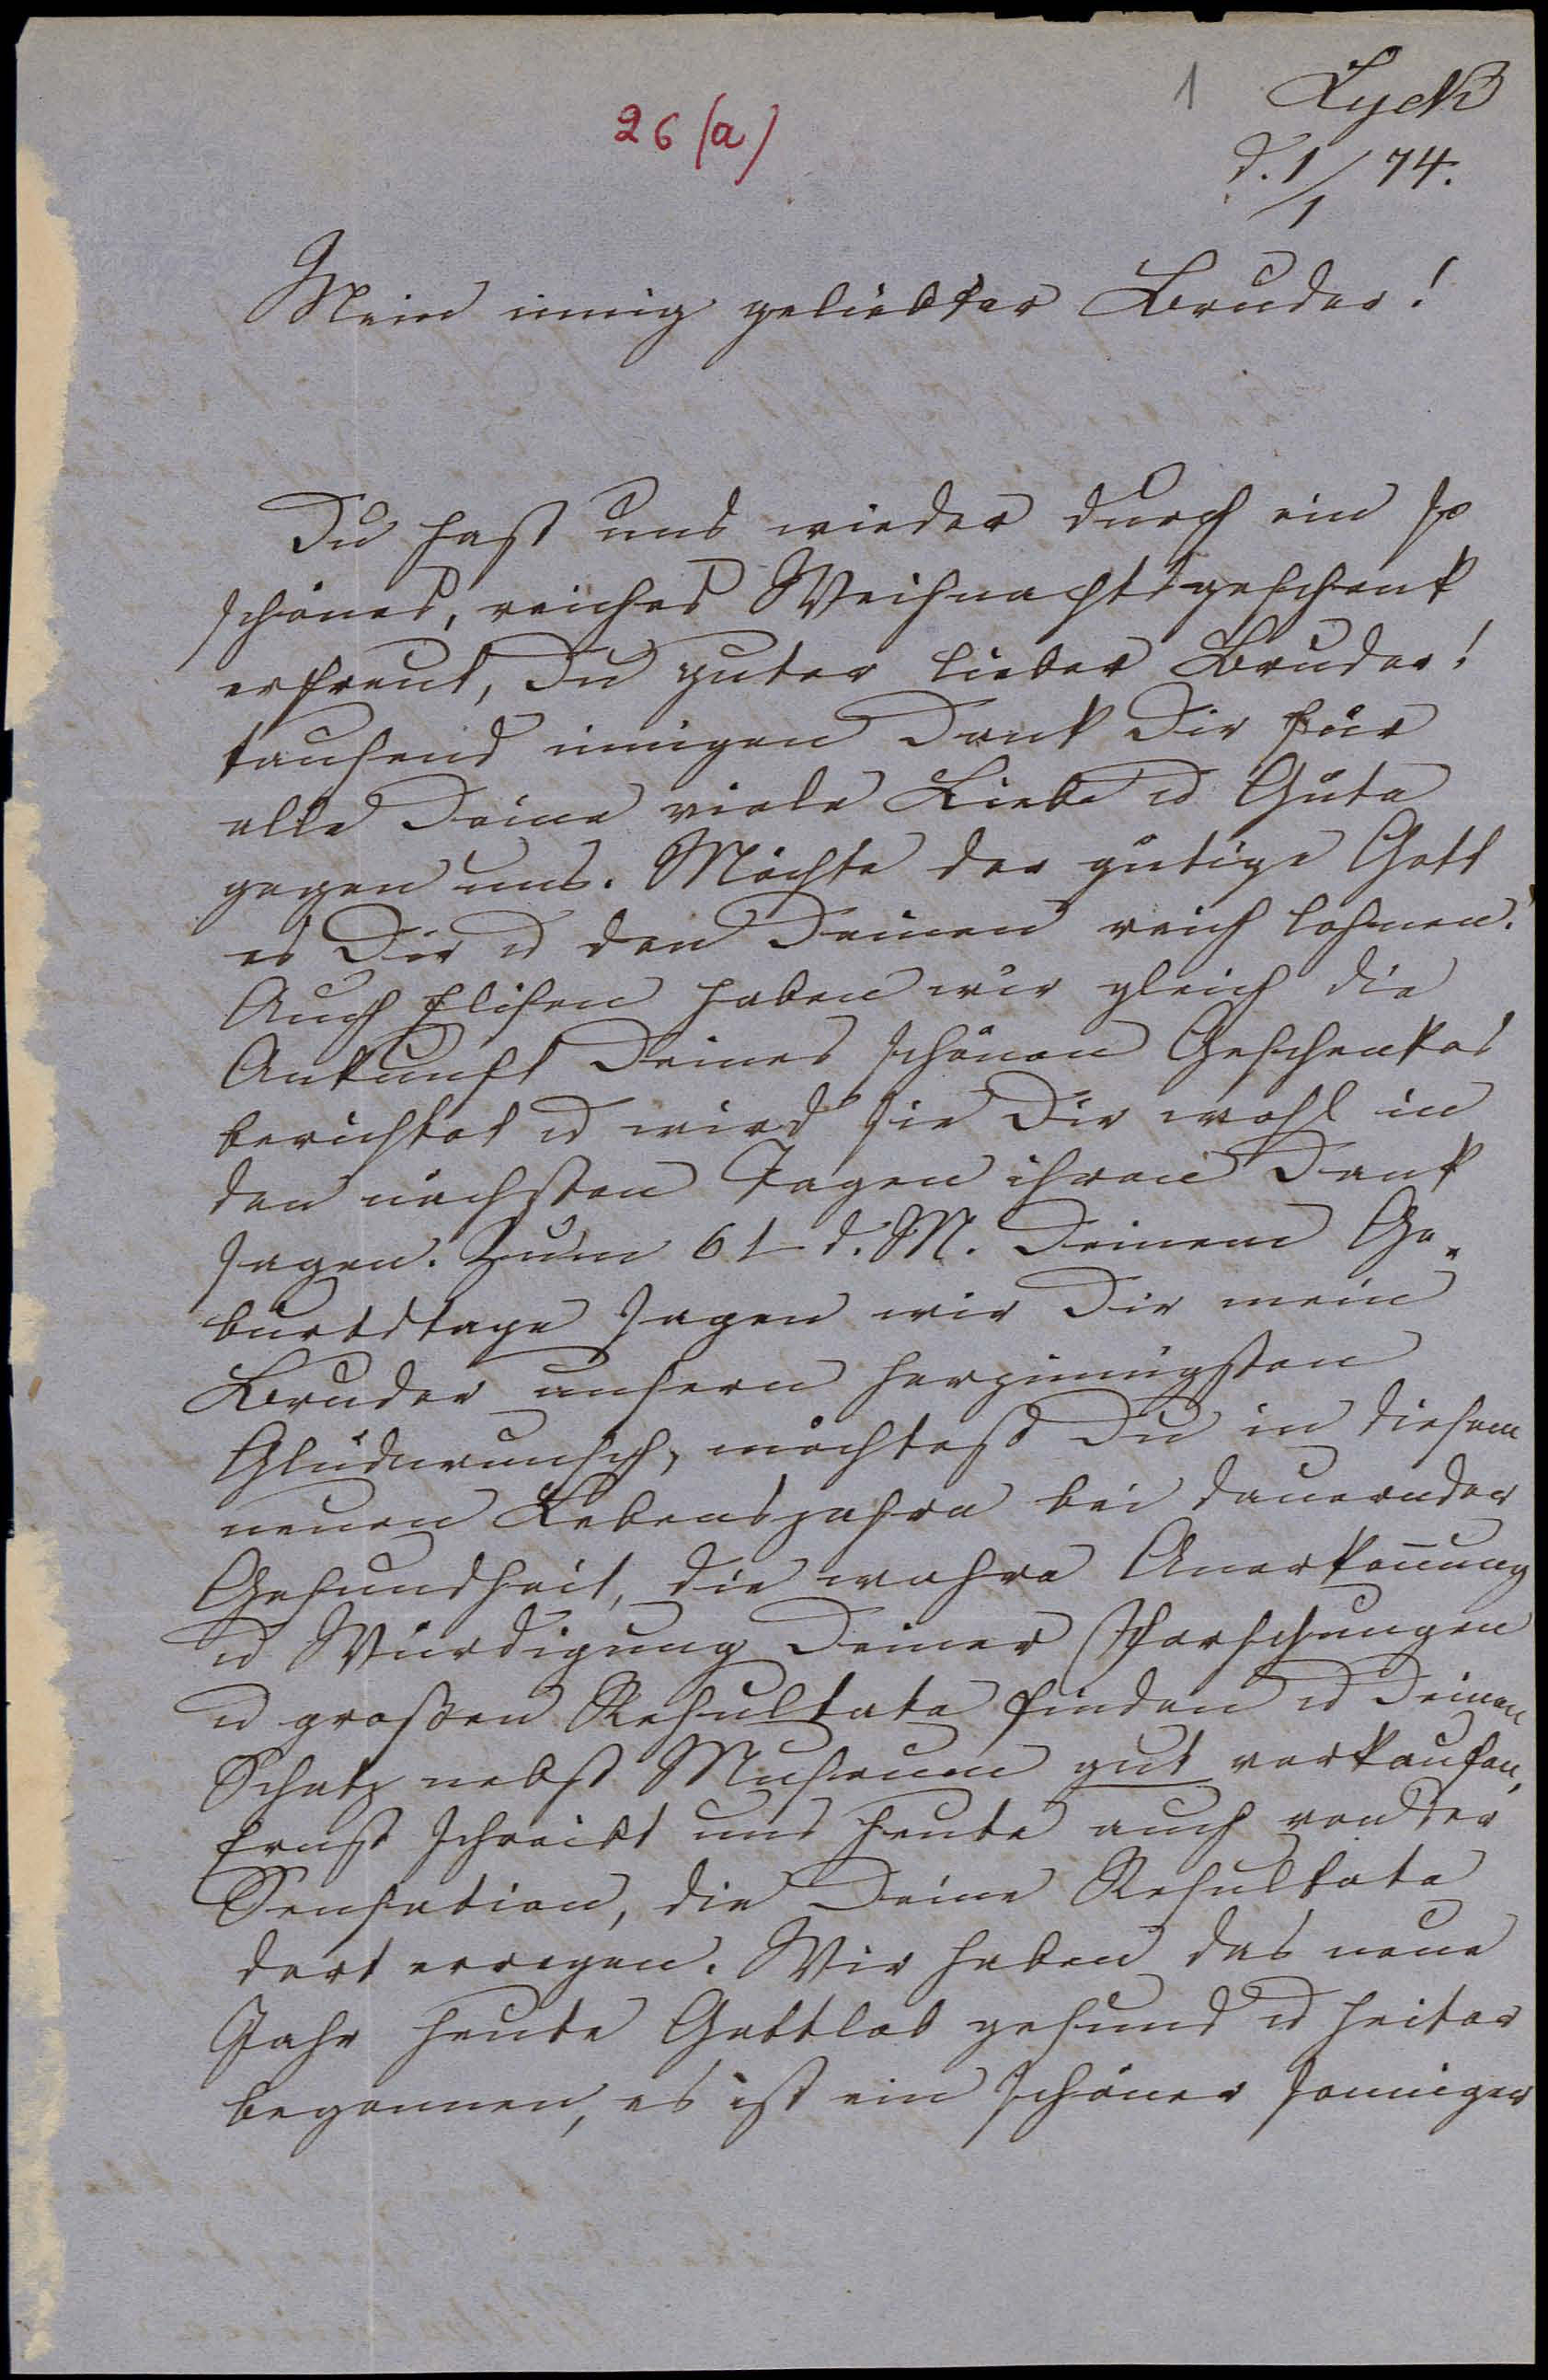 26 (a)
1 Lyck
d. 1/1 74.
Mein innig geliebter Bruder!
Du hast uns wieder durch ein so
schönes, reiches Weihnachtsgeschenk
erfreut, Du guter lieber Bruder!
tausend innigen Dank Dir für
alle Deine viele Liebe u Güte
gegen uns. Möchte der gütige Gott
es Dir u den Deinen reich lohnen!
Auch Elisen haben wir gleich die
Ankunft Deines schönen Geschenkes
berichtet u wird sie Dir wohl in
den nächsten Tagen ihren Dank
sagen. Zum 6t d. M. Deinem Ge-
burtstage sagen wir Dir mein
Bruder unsern herzinnigsten
Glückwunsch, möchtest Du in diesem
neuen Lebensjahre bei dauernder
Gesundheit, die wahre Anerkennung
u Würdigung Deiner Forschungen
u großen Resultate finden u Deinen
Schatz nebst Museum gut verkaufen,
Ernst schreibt uns heute auch von der
Sensation, die Deine Resultate
dort erregen. Wir haben das neue
Jahr heute Gottlob gesund u heiter
begonnen, es ist ein schöner sonniger